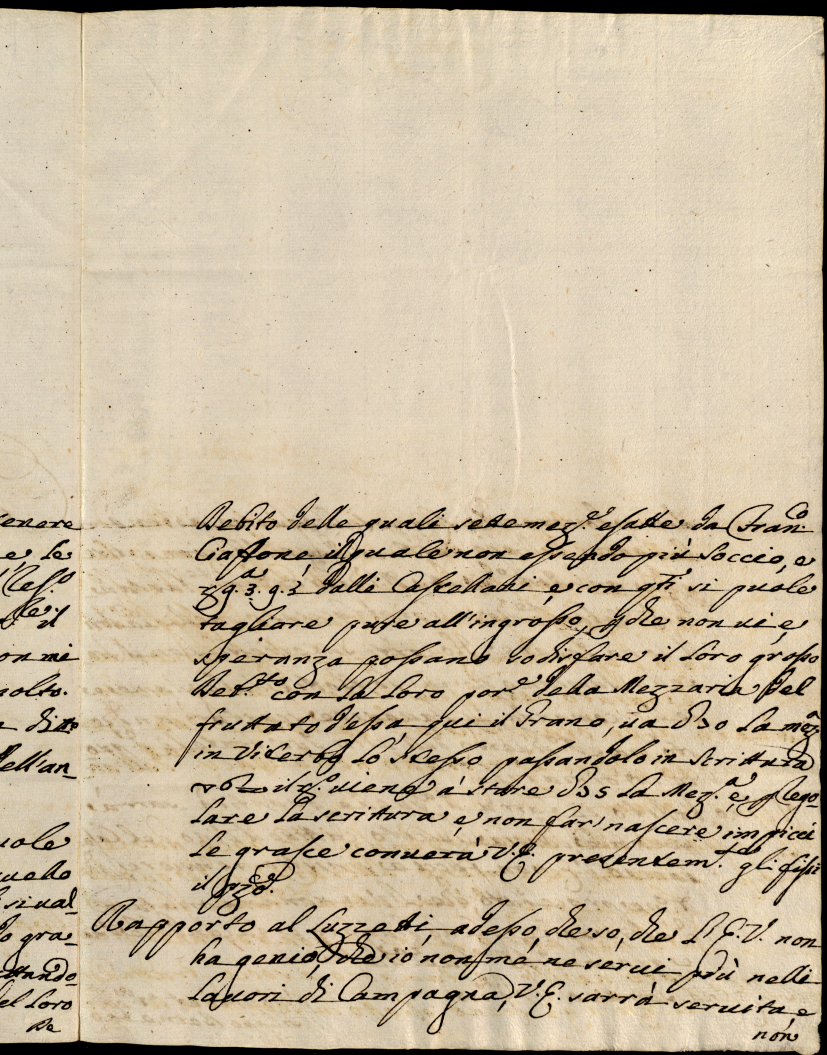 enere
e, le
il
on mi
molto.
ditto
dell'an-
uole
uello
si ual-
o gra-
ttando-
del Loro
De
Debito delle quali settemez.e esatte da Fran.co
Ciaffone il quale non essendo più soccio, e
dalli Castellani è con q.ti si puole
tagliare pure all'ingrosso, p che non ui e
speranza possano sodisfare il Loro grosso
Deb.to con la Loro por.e della Mezzaria Del
fruttato dessa, qui il Grano, ua D 30 La mez.a
in Viterbo Lo stesso passandolo in scrittura
il r.o uiene à stare D 35 La Mez.a e p rego-
lare La scrittura e non far nascere impicci
Le grasce conuerà V.E. presentem.te gli fissi
il pzo.
Rapporto al Luzzetti, adesso, che so, che L'E.V. non
ha genio, che io non mé ne serui più nelli
Lauori di Campagna, V.E. sarrà seruita e
non